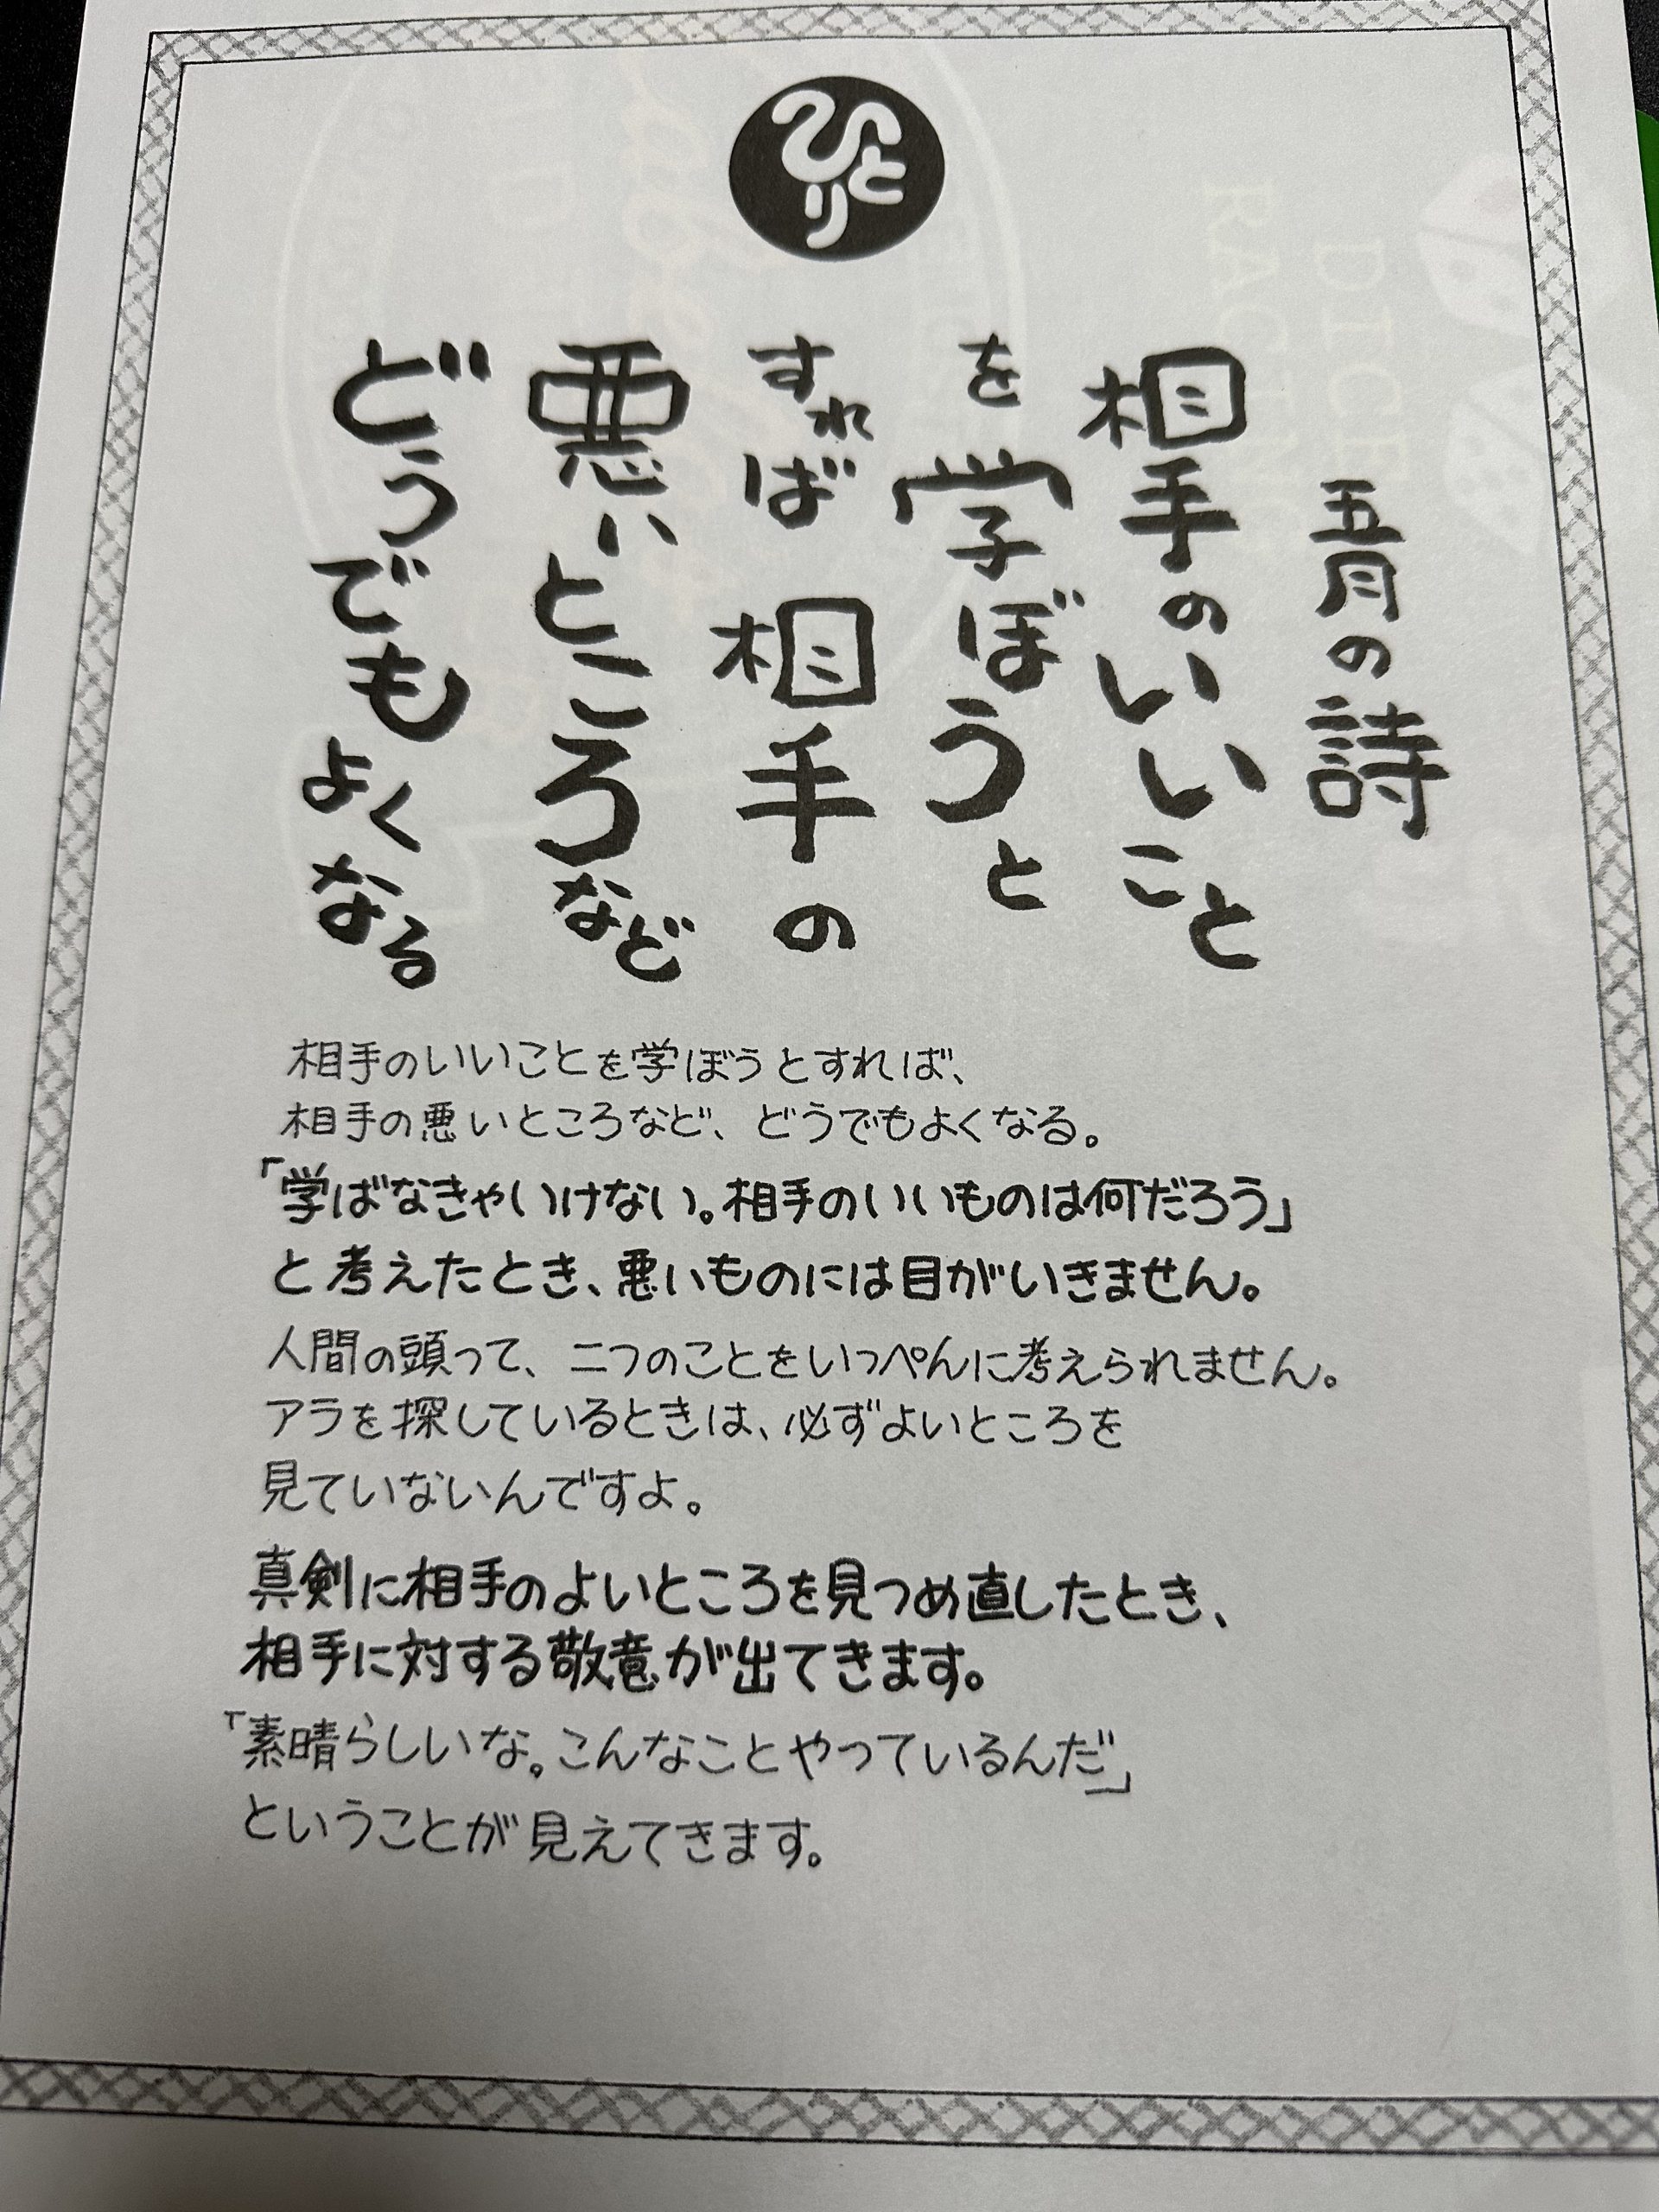 ひとり
五月の詩
相手のいいこと
を学ぼうと
すれば 相手の
悪いところなど
どうでもよくなる
相手のいいことを学ぼうとすれば、
相手の悪いところなど、どうでもよくなる。
「学ばなきゃいけない。相手のいいものは何だろう」
と考えたとき、悪いものには目がいきません。
人間の頭って、二つのことをいっぺんに考えられません。
アラを探しているときは、必ずよいところを
見ていないんですよ。
真剣に相手のよいところを見つめ直したとき、
相手に対する敬意が出てきます。
「素晴らしいな。こんなことやっているんだ」
ということが見えてきます。